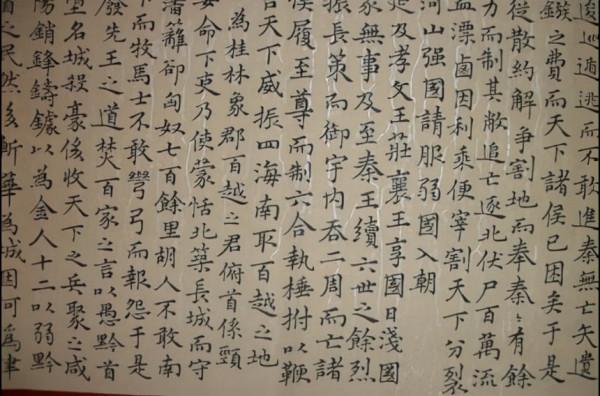 逡巡遁逃而不敢進秦無亡矢遺
鏃之費而天下諸侯已困矣于是
從散約解爭割地而奉秦秦有餘
力而制其敝追亡逐北伏尸百萬流
血漂鹵因利乘便宰割天下分裂
河山強國請服弱國入朝
延及孝文王莊襄王享國日淺國
家無事及至秦王續六世之餘烈
振長策而御宇內吞二周而亡諸
侯履至尊而制六合執棰拊以鞭
笞天下威振四海南取百越之地
為桂林象郡百越之君俯首係頸
委命下吏乃使蒙恬北築長城而守
藩籬卻匈奴七百餘里胡人不敢南
下而牧馬士不敢彎弓而報怨于是
廢先王之道焚百家之言以愚黔首
墮名城殺豪俊收天下之兵聚之咸
陽銷鋒鑄鐻以為金人十二以弱黔
首之民然後斬華為城因河為津